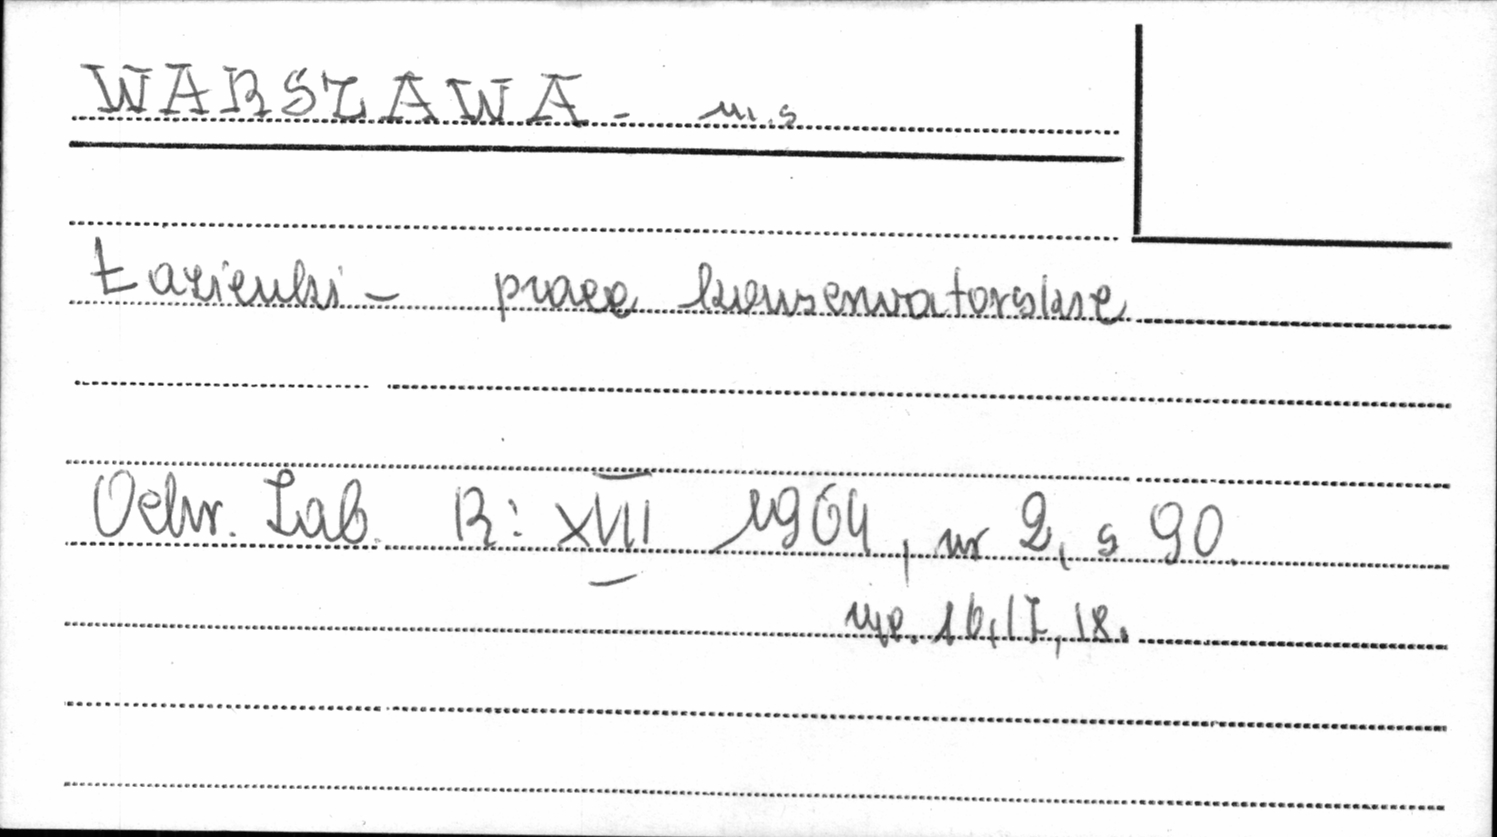 WARSZAWA - m.s
Łazienki - prace konserwatorskie
Ochr. Zab. R: XVII 1964, nr 2, s 90.
ryc. 16, 17, 18.